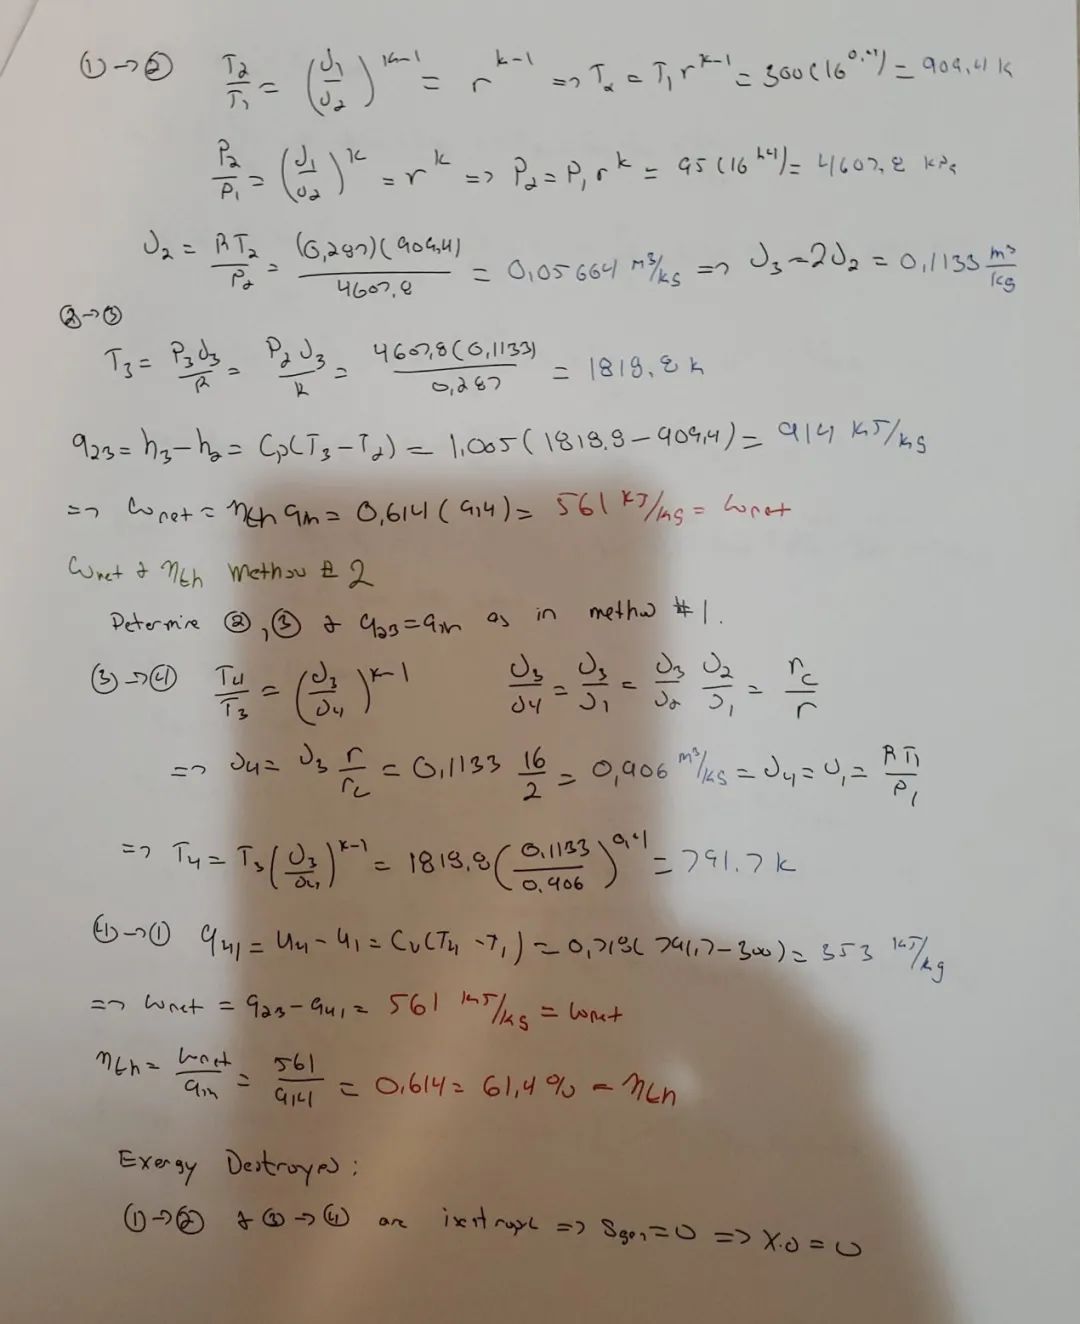 ①→② T₂/T₁ = (υ₁/υ₂)^(k-1) = r^(k-1) => T₂ = T₁ r^(k-1) = 300(16^0.4) = 909,4 K
P₂/P₁ = (υ₁/υ₂)^k = r^k => P₂ = P₁ r^k = 95(16^1.4) = 4607,8 kPa
υ₂ = RT₂/P₂ = (0,287)(909,4)/4607,8 = 0,05664 m³/kg => υ₃ = 2υ₂ = 0,1133 m³/kg
②→③
T₃ = P₃υ₃/R = P₂υ₃/R = 4607,8(0,1133)/0,287 = 1818,8 K
q₂₃ = h₃ - h₂ = Cp(T₃ - T₂) = 1,005(1818,8 - 909,4) = 914 kJ/kg
=> Wnet = ηth qin = 0,614(914) = 561 kJ/kg = Wnet
Wnet & ηth Method # 2
Determine ②, ③ & q₂₃ = qin as in method #1.
③→④ T₄/T₃ = (υ₃/υ₄)^(k-1) υ₃/υ₄ = υ₃/υ₁ = υ₃/υ₂ υ₂/υ₁ = rc/r
=> υ₄ = υ₃ r/rc = 0,1133 16/2 = 0,906 m³/kg = υ₄ = υ₁ = RT₁/P₁
=> T₄ = T₃(υ₃/υ₄)^(k-1) = 1818,8(0.1133/0.906)^0,4 = 791.7 K
④→① q₄₁ = u₄ - u₁ = Cv(T₄ - T₁) = 0,718(791,7 - 300) = 353 kJ/kg
=> Wnet = q₂₃ - q₄₁ = 561 kJ/kg = Wnet
ηth = Wnet/qin = 561/914 = 0,614 = 61,4 % = ηth
Exergy Destroyed:
①→② & ③→④ are isentropic => Sgen = 0 => X.D = 0